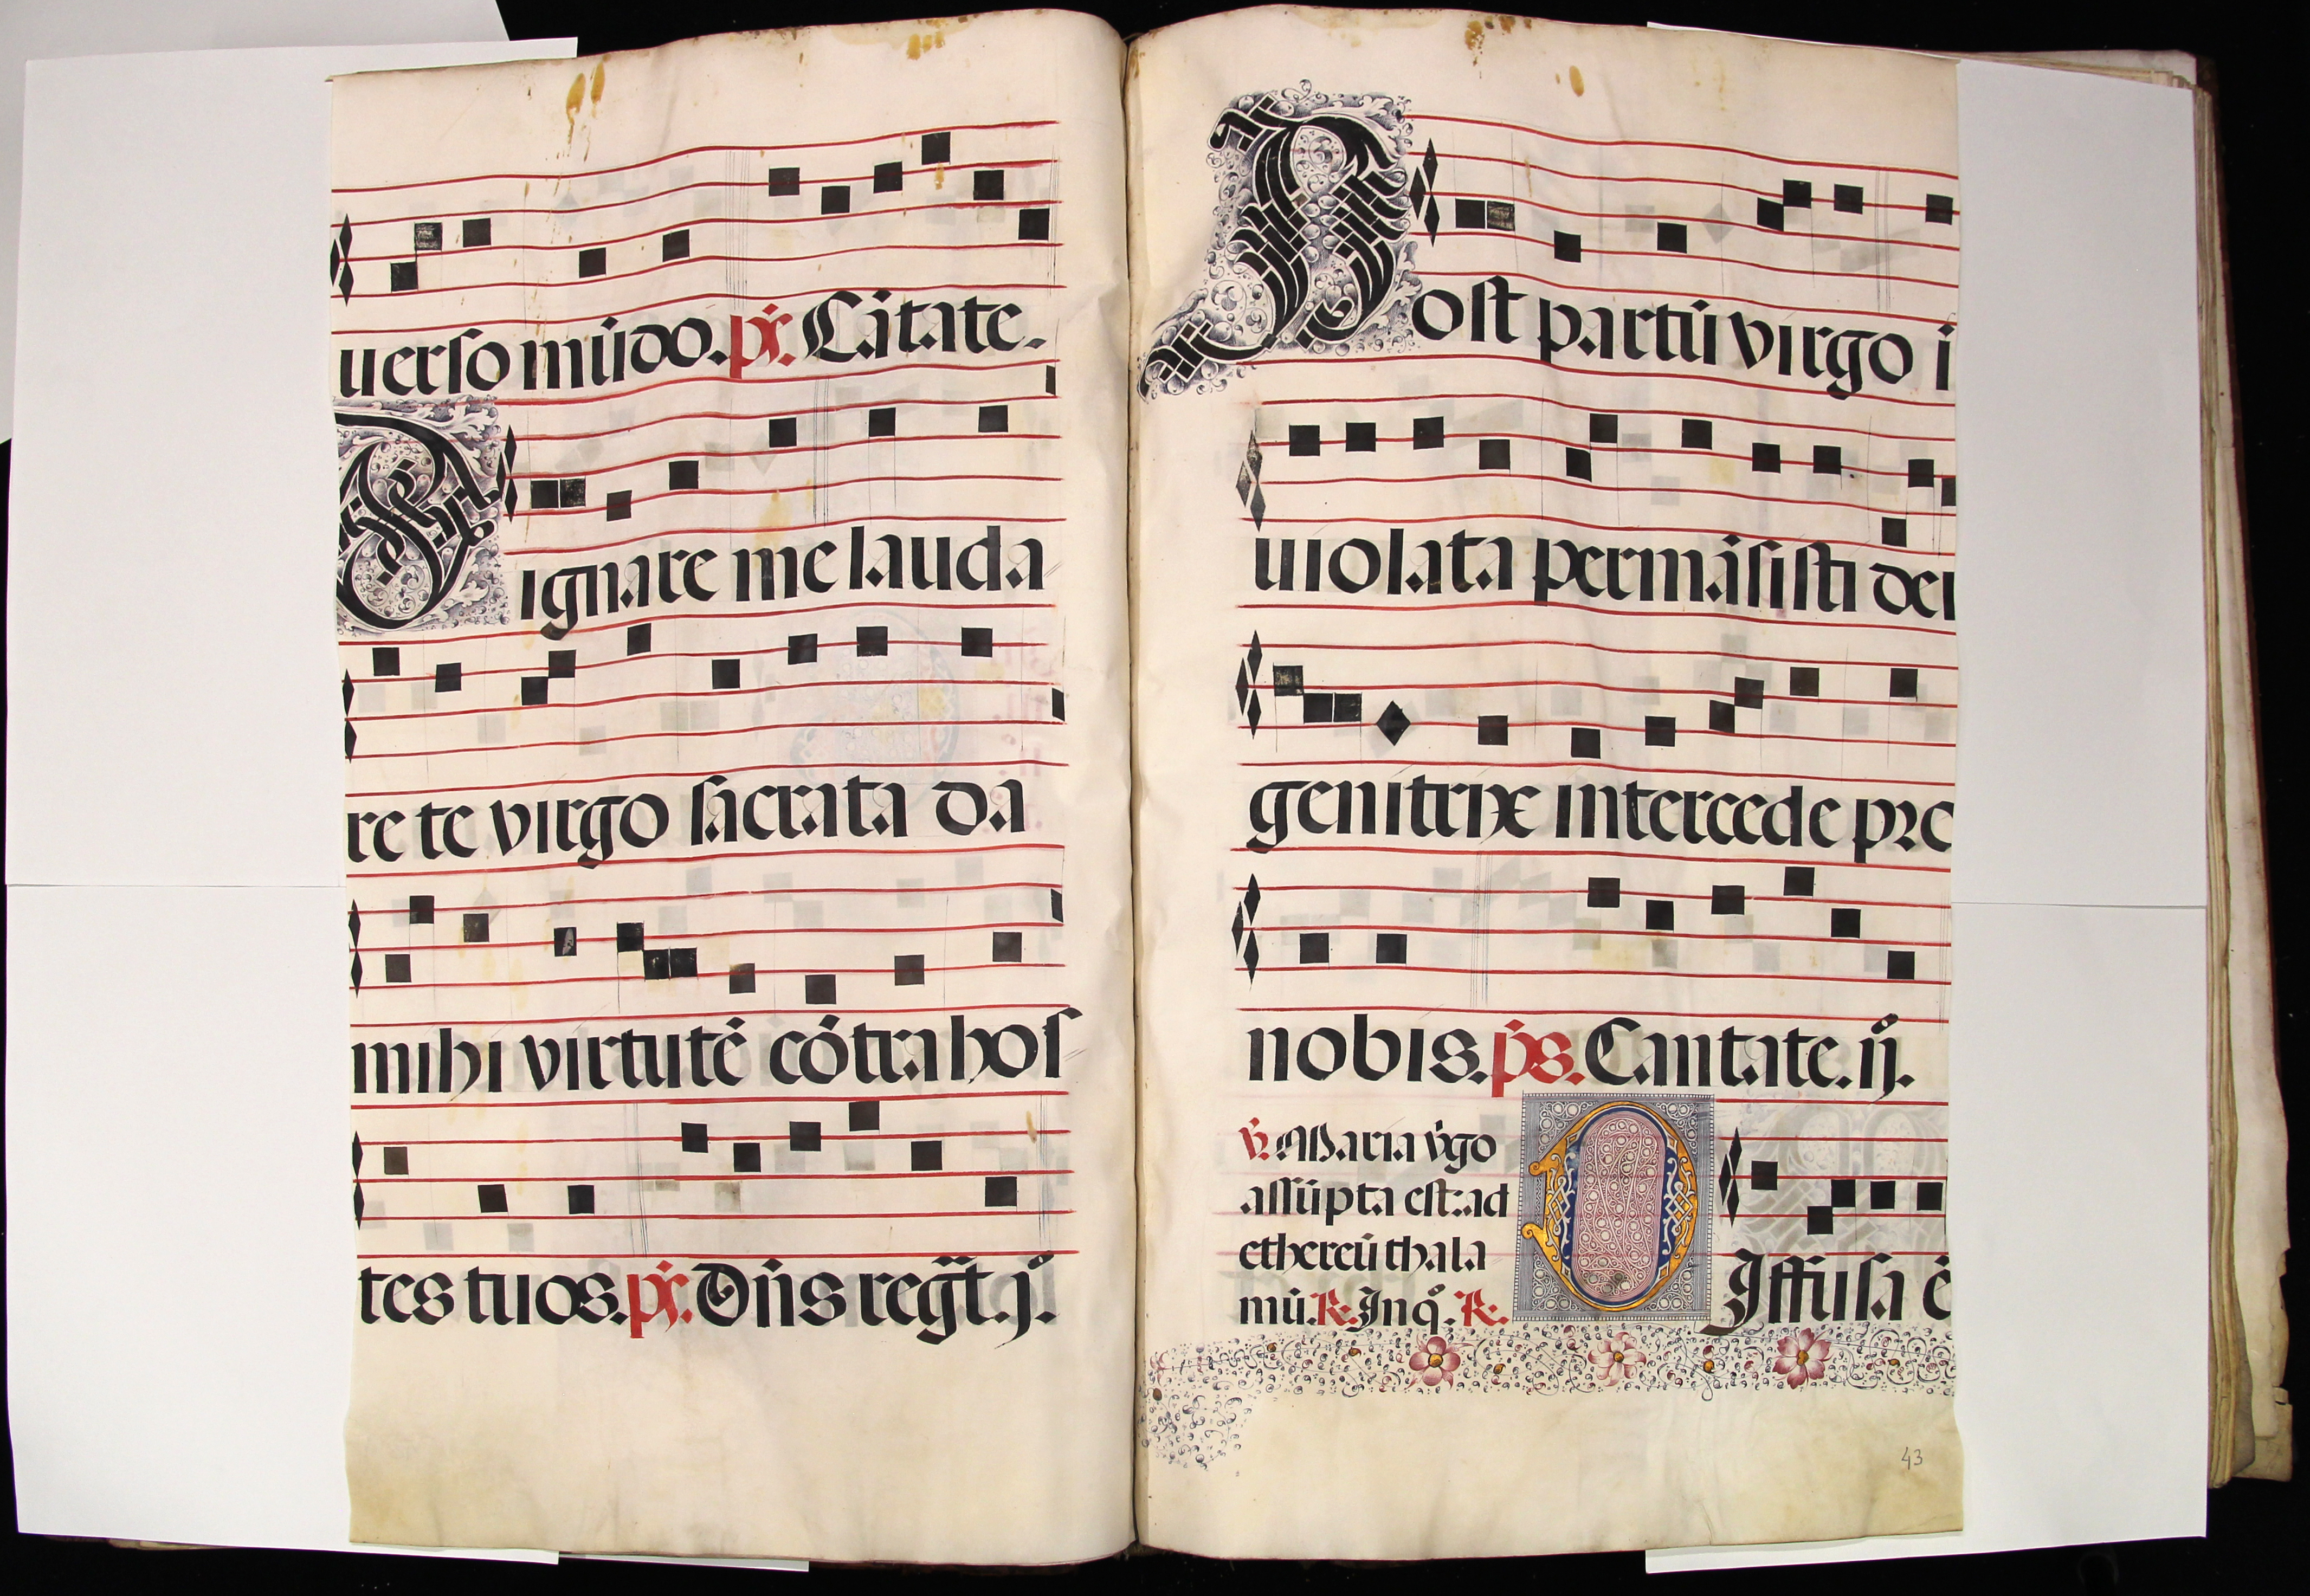 uerso mūdo. ps. Cātate.
Dignare me lauda
re te virgo sacrata da
mihi virtutē cōtra hos
tes tuos. ps. Dn̄s regt̄. j͛.
Post partū virgo i
uiolata permāsisti dei
genitrix intercede pro
nobis. ps. Cantate. ij͛.
V. Maria v̄go
assūpta est: ad
ethereū thala
mū. R. In q͛. R.
Diffusa ē
43